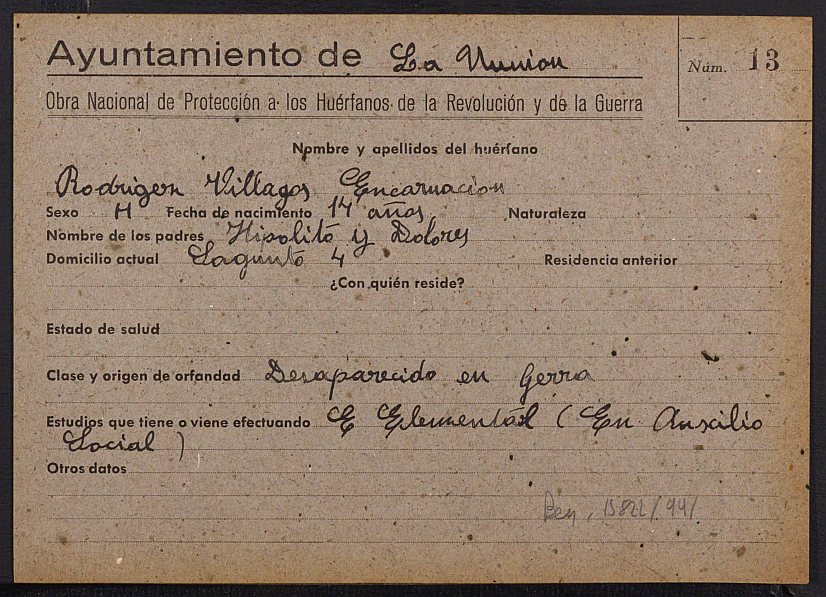 Ayuntamiento de La Union
Núm. 13
Obra Nacional de Protección a los Huérfanos de la Revolución y de la Guerra
Nombre y apellidos del huérfano
Villagos Encarnacion
Sexo H Fecha de nacimiento 14 años Naturaleza
Nombre de los padres Hipolito y Dolores
Domicilio actual Sagunto 4 Residencia anterior
¿Con quién reside?
Estado de salud
Clase y origen de orfandad Desaparecido en Gerra
Estudios que tiene o viene efectuando E Elemental (En Auxilio
Social)
Otros datos
15822/44/